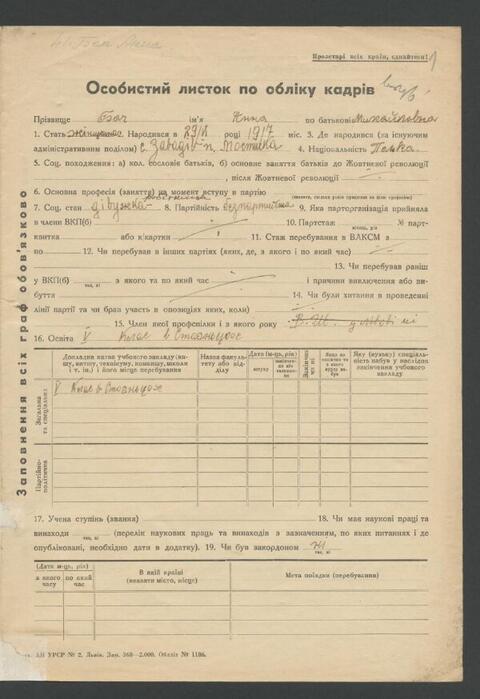 Пролетарі всіх країн, єднайтеся!
Особистий листок по обліку кадрів
Прізвище Бач ім'я Анна по батькові Михайловна
1. Стать жіноча Народився в 29/X році 1917 міс. 3. Де народився (за існуючим
адміністративним поділом) с. Завадів п. Мостиска 4. Національність Полька.
5. Соц. походження: а) кол. сословія батьків, б) основне заняття батьків до Жовтневої революції
, після Жовтневої революції
6. Основна професія (заняття) на момент вступу в партію
7. Соц. стан 8. Партійність безпартийна 9. Яка парторганізація прийняла
в члени ВКП(б) 10. Партстаж № парт-
місяць, рік
квитка або к/картки 11. Стаж перебування в ВЛКСМ з
по 12. Чи перебував в інших партіях (яких, де, з якого і по який час)
13. Чи перебував раніш
у ВКП(б) з якого та по який час і причини виключення або ви-
так, ні
буття 14. Чи були хитання в проведенні
лінії партії та чи брав участь в опозиціях яких, коли)
15. Член якої профспілки і з якого року
16. Освіта V клас в
Заповнення всіх граф обов'язково
Докладна назва учбового закладу (ви-
шу, втишу, технікуму, комвишу, школи
і т. ін.) і його місце перебування
Назва факуль-
тету або від-
ділу
Дата (м-ць, рік)
вступу
Яку (вузьку) спеціаль-
ність набув у наслідок
закінчення учбового
закладу
Загальна
та спеціальна
V клас в
Партійно-
політична
17. Учена ступінь (звання) 18. Чи має наукові праці та
винаходи (перелік наукових праць та винаходів з зазначенням, по яких питаннях і де
опубліковані, необхідно дати в додатку). 19. Чи був закордоном ні
так, ні
Дата (м-ць, рік)
з якого часу
по який час
В якій країні
(вказати місто, місце)
Мета поїздки (перебування)
АН УРСР № 2. Львів. Зам. 368—2.000. Обліт № 1186.